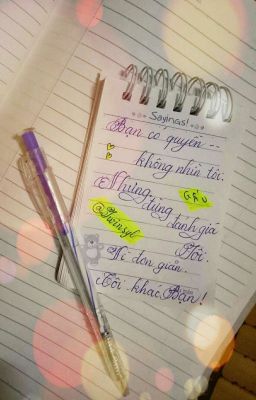 Sayings!
Bạn có quyền --
không nhìn tôi.
Nhưng
GẤU
đừng đánh giá
@Twinsyl
Tôi.
Vì đơn giản.
Tôi khác Bạn!